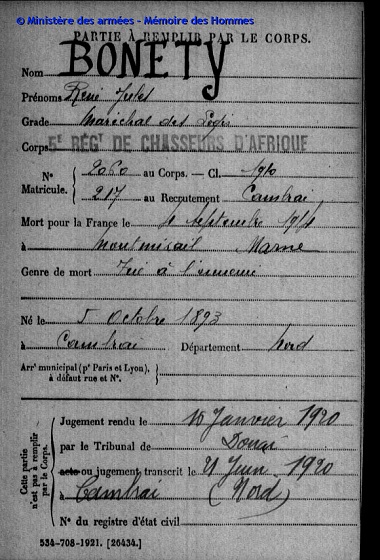 © Ministère des armées - Mémoire des Hommes
PARTIE À REMPLIR PAR LE CORPS.
Nom BONETY
Prénoms René Jules
Grade Maréchal des Logis
Corps 5e RÉGT DE CHASSEURS D'AFRIQUE
N° 2060 au Corps. — Cl. 1910
Matricule. 217 au Recrutement Cambrai
Mort pour la France le 4 septembre 1914
à Montmirail Marne
Genre de mort Tué à l'ennemi
Né le 5 Octobre 1893
à Cambrai Département Nord
Arr' municipal (p' Paris et Lyon),
à défaut rue et N°.
Cette partie
n'est pas à remplir
par le Corps.
Jugement rendu le Janvier 1920
par le Tribunal de Douai
acte ou jugement transcrit le 21 Juin 1920
à Cambrai (Nord)
N° du registre d'état civil
534-708-1921. [26434.]